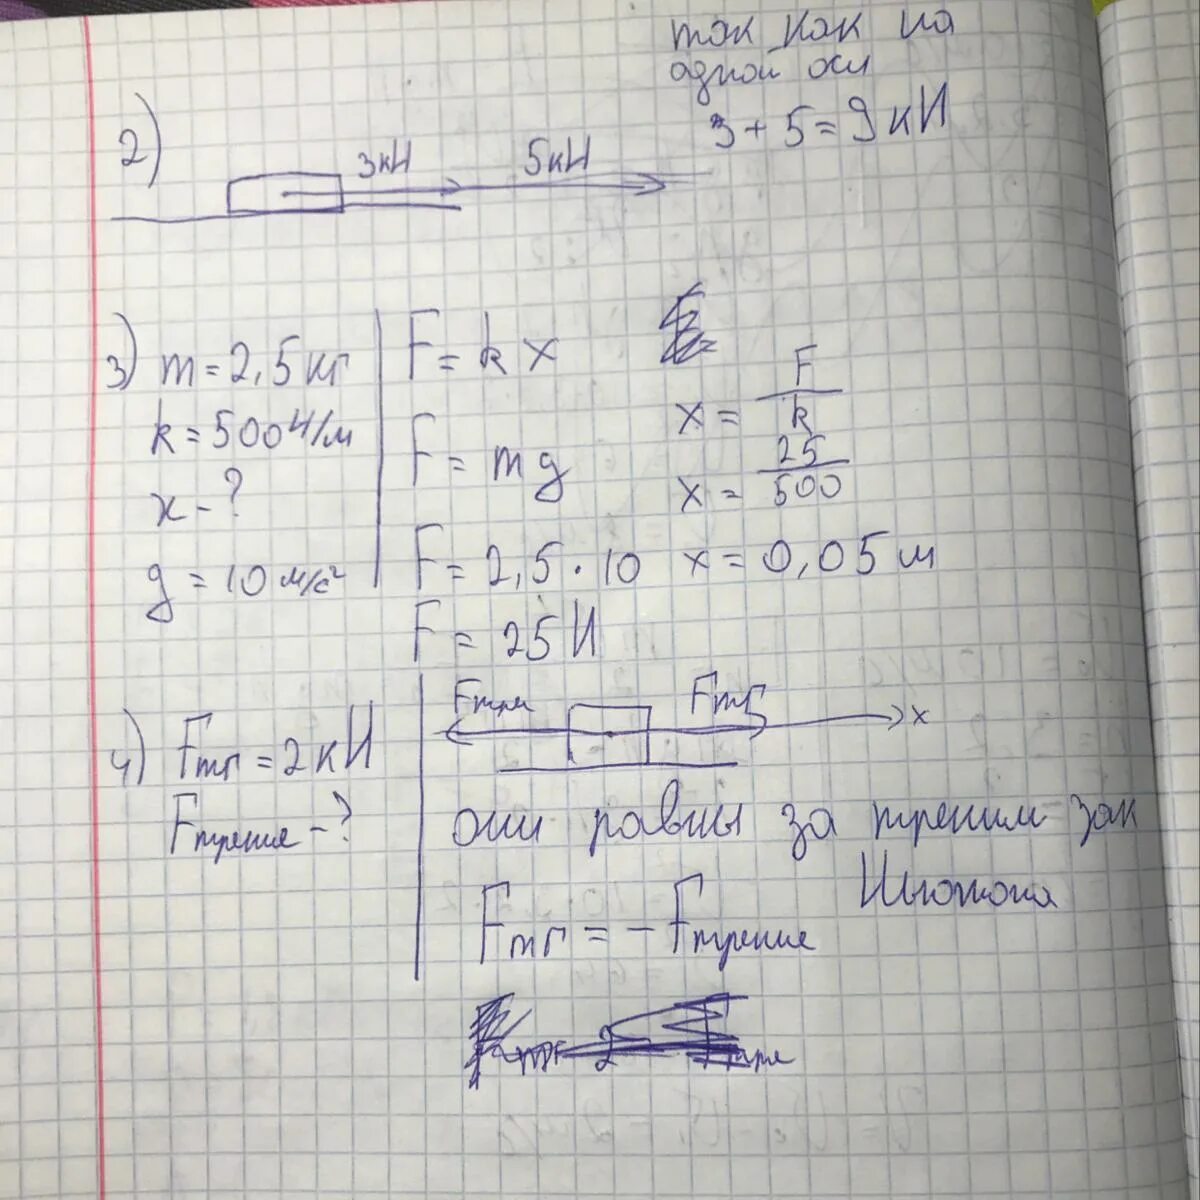 так как на
одной оси
3 + 5 = 9 кН
2)
3кН
5кН
3) m = 2,5 кг
k = 500 Н/м
x - ?
g = 10 м/с²
F = k x
F = mg
F = 2,5 · 10
F = 25 Н
x = F/k
x = 25/500
x = 0,05 м
4) Fтг = 2 кН
Fтрение - ?
Fтрен
Fтг
x
они равны за третим зак
Ньютона
Fтг = - Fтрение